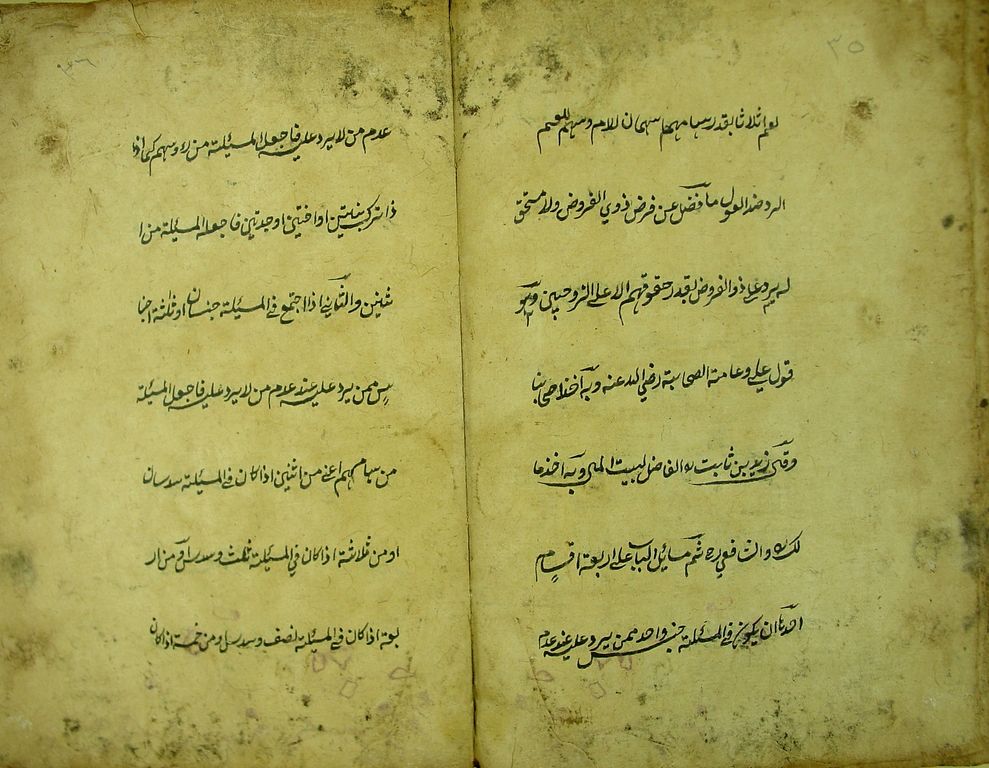 ٣٥
لعم اثلاثا بقدر سهامهما سهمان للام وسهم للعم
الرد ضد العول ما فضل عن فرض ذوي الفروض ولا مستحق
له يرد على ذو الفروض بقدر حقوقهم الا على الزوجين وهو
قول علي وعامة الصحابة رضي الله عنه وبه اخذ اصحابنا
وقال زيد بن ثابت الفاضل لبيت المال وبه اخذ ما
لك والشافعي ره ثم مسائل الباب على اربعة اقسام
احدها ان يكون في المسئلة جنس واحد ممن يرد عليه عند عدم
٣٦
عدم من لا يرد عليه فاجعل المسئلة من رءوسهم كما اذا
ذا ترك بنتين او اختين او جدتين فاجعل المسئلة من ا
ثنين والثاني اذا اجتمع في المسئلة جنسان او ثلثة اجنا
س ممن يرد عليه عند عدم من لا يرد عليه فاجعل المسئلة
من سهامهم اعني من اثنين اذا كان في المسئلة سدسان
او من ثلاثة اذا كان في المسئلة ثلث وسدس او من ار
بعة اذا كان في المسئلة نصف وسدس او من خمسة اذا كان